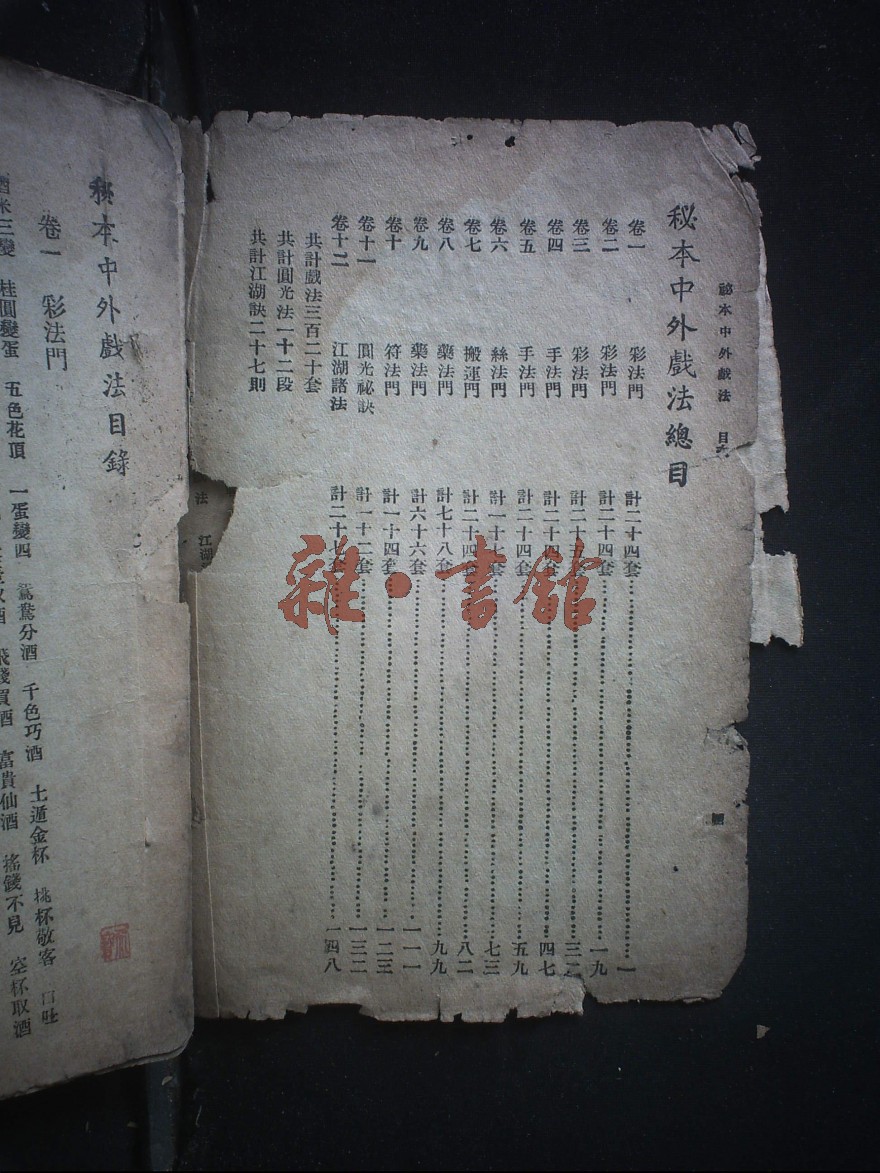 秘本中外戲法 目
秘本中外戲法總目
卷一 彩法門 計二十四套 一
卷二 彩法門 計二十四套 一九
卷三 彩法門 計二十 套 三二
卷四 手法門 計二十四套 四七
卷五 手法門 計二十四套 五九
卷六 絲法門 計一十七套 七三
卷七 搬運門 計二十四套 八二
卷八 藥法門 計七十八套 九九
卷九 藥法門 計六十六套 一一一
卷十 符法門 計一十四套 一二三
卷十一 圓光祕訣 計一十二套 一三二
卷十二 江湖諸法 計二十七套 一四八
共計戲法三百二十套
共計圓光法一十二段
共計江湖訣二十七則
法 江湖
秘本中外戲法目錄
卷一 彩法門
酒米三變 桂圓變蛋 五色花頂 一蛋變四 鴛鴦分酒 千色巧酒 土遁金杯 挑杯敬客 口吐
酒 飛錢買酒 富貴仙酒 搖錢不見 空杯取酒
雜·書館